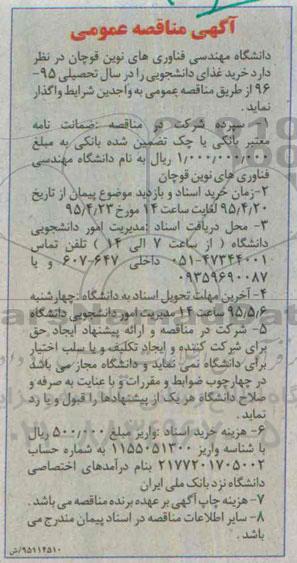 آگهی مناقصه عمومی
دانشگاه مهندسی فناوری های نوین قوچان در نظر
دارد خرید غذای دانشجویی را در سال تحصیلی ۹۵-
۹۶ از طریق مناقصه عمومی به واجدین شرایط واگذار
نماید.
۱- سپرده شرکت در مناقصه :ضمانت نامه
معتبر بانکی یا چک تضمین شده بانکی به مبلغ
۱/۰۰۰/۰۰۰/۰۰۰ ریال به نام دانشگاه مهندسی
فناوری های نوین قوچان
۲-زمان خرید اسناد و بازدید موضوع پیمان از تاریخ
۹۵/۴/۲۰ لغایت ساعت ۱۴ مورخ ۹۵/۴/۲۳
۳- محل دریافت اسناد :مدیریت امور دانشجویی
دانشگاه ( از ساعت ۷ الی ۱۴ ) تلفن تماس
۰۵۱-۴۷۳۴۴۰۰۱ داخلی ۶۴۷-۶۰۷ و یا
۰۹۳۵۹۶۹۰۰۸۷
۴- آخرین مهلت تحویل اسناد به دانشگاه :چهارشنبه
۹۵/۵/۶ ساعت ۱۴ مدیریت امور دانشجویی دانشگاه
۵- شرکت در مناقصه و ارائه پیشنهاد ایجاد حق
برای شرکت کننده و ایجاد تکلیف و یا سلب اختیار
برای دانشگاه نمی نماید و دانشگاه مجاز می باشد
در چهارچوب ضوابط و مقررات و با عنایت به صرفه و
صلاح دانشگاه هر یک از پیشنهادها را قبول و یا رد
نماید.
۶- هزینه خرید اسناد :واریز مبلغ ۵۰۰/۰۰۰ ریال
با شناسه واریز ۱۱۵۵۰۵۱۳۰۰ به شماره حساب
۲۱۷۷۲۰۱۷۰۵۰۰۲ بنام درآمدهای اختصاصی
دانشگاه نزد بانک ملی ایران
۷- هزینه چاپ آگهی بر عهده برنده مناقصه می باشد.
۸- سایر اطلاعات مناقصه در اسناد پیمان مندرج می
باشد.
۹۵۱۱۴۵۱۰/ش